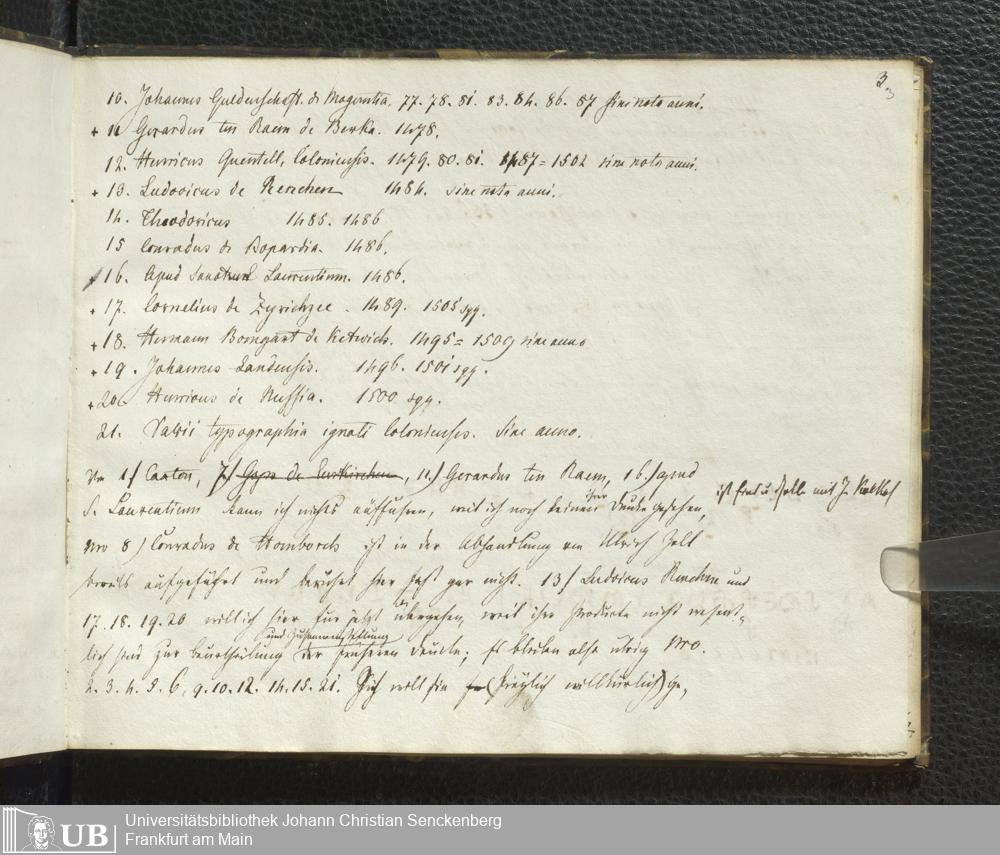 3.
10. Johannes Guldenschaff. de Magontia. 77. 78. 81. 83. 84. 86. 87 sine nota anni.
+ 11 Gerardus ten Raem de Berka. 1478.
12. Henricus Quentell, Coloniensis. 1479. 80. 81. 1487=1502 sine nota anni.
+ 13. Ludovicus de Renchen 1484. sine nota anni.
14. Theodoricus 1485. 1486
15 Conradus de Bopardia. 1486.
+ 16. Apud Sanctum Laurentium. 1486.
+ 17. Cornelius de Zyrichzee. 1489. 1505 sqq.
+ 18. Hermann Bomgart de Ketwich. 1495=1509 sine anno
+ 19. Johannes Landensis. 1496. 1501 sqq.
+ 20. Henricus de Nussia. 1500 sqq.
21. Varii typographia ignoti Colonienses. Sine anno.
Nro 1) Caxton, 7) Gops de Euskirchen, 11.) Gerardus ten Raem, 16.) apud
S. Laurentium kann ich nichts aufführen, weil ich noch keinen ihrer Drucke gesehen,
ist und selbe mit J. Koelhof
Nro 8) Conradus de Homborch ist in der Abhandlung von Ulrich Zell
bereits aufgeführt und hier fast gar nicht. 13) Ludovicus Renchen und
17. 18. 19. 20 will ich hier für jetzt übergehen, weil ihre Producte nicht wesent-
lich sind zur Beurtheilung und Zusammenstellung der früheren Drucke; Es bleiben also übrig Nro.
2. 3. 4. 5. 6, 9. 10. 12. 14. 15. 21. Ich will sie (freylich willkürlich) ge-
Universitätsbibliothek Johann Christian Senckenberg
Frankfurt am Main
UB